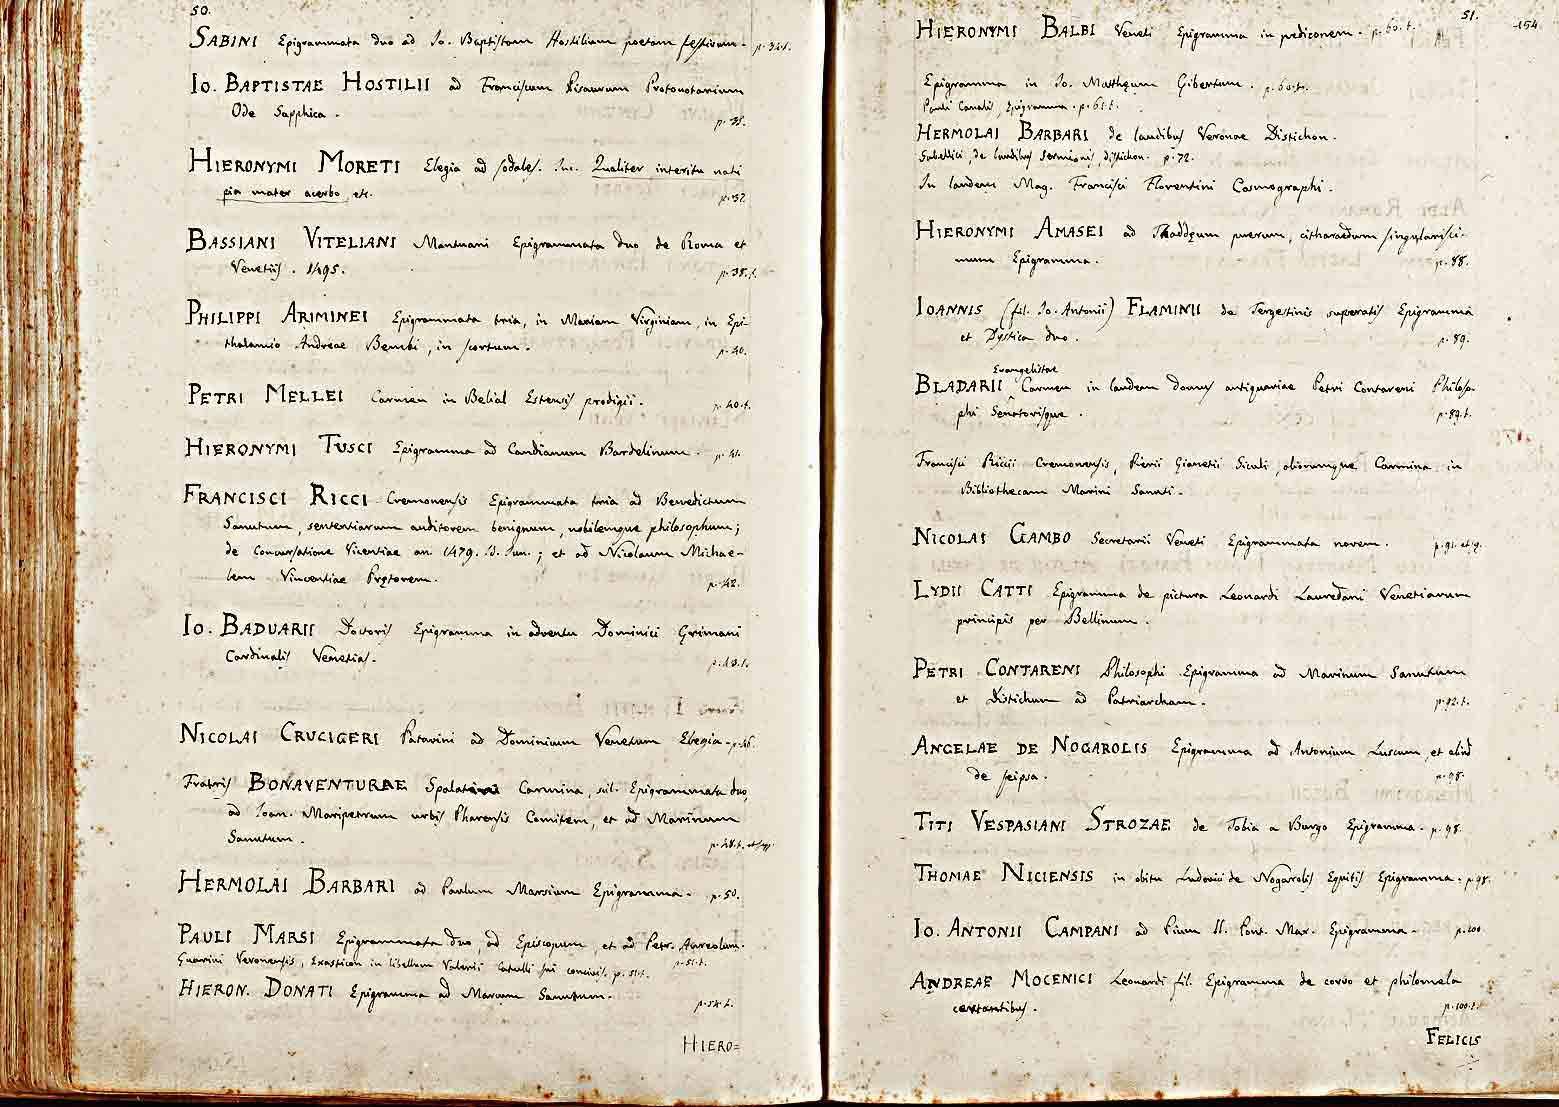 50.
SABINI Epigrammata duo ad Io. Baptistam Hostilium poetam festivum. p. 34.t.
Io. BAPTISTAE HOSTILII ad Franciscum Pisaurum Protonotarium
Ode Sapphica.
p. 35.
HIERONYMI MORETI Elegia ad sodales. Inc. Qualiter interitu nati
pia mater acerbo, etc.
p. 37.
BASSIANI VITELIANI Mantuani Epigrammata duo de Roma et
Venetiis. 1495.
p. 38.t.
PHILIPPI ARIMINEI Epigrammata tria, in Mariam Virginiam, in Epi-
thalamio Andreae Bembi, in scortum.
p. 40.
PETRI MELLEI Carmen in Belial Estensis prodigii.
p. 40.t.
HIERONYMI TUSCI Epigramma ad Candianum Bardelinum. p. 41.
FRANCISCI RICCI Cremonensis Epigrammata tria ad Benedictum
Sanutum, sententiarum auditorem benignum, nobilemque philosophum;
de concursatione Vicentiae an. 1479. 13. Iun.; et ad Nicolaum Michae-
lem Vincentiae Pretorem.
p. 42.
Io. BADUARII Doctoris Epigramma in adventu Dominici Grimani
Cardinalis Venetias.
p. 43.t.
NICOLAI CRUCIGERI Patavini ad Dominium Venetum Elegia. p. 46.
Fratris BONAVENTURAE Spalatini Carmina, sil. Epigrammata duo,
ad Ioan. Maripetrum urbis Pharensis Comitem, et ad Marinum
Sanutum.
p. 48.t. et
HERMOLAI BARBARI ad Paulum Marsium Epigramma. p. 50.
PAULI MARSI Epigrammata duo, ad Episcopum, et ad Petr. Aureolum.
Guarini Veronensis, Exasticon in libellum Valerii Catulli sui concivis. p. 51.t. p. 51.t.
HIERON. DONATI Epigramma ad Marcum Sanutum.
p. 54.t.
HIERO=
51.
154
HIERONYMI BALBI Veneti Epigramma in pediconem. p. 60.t.
Epigramma in Io. Mattheum Gibertum. p. 60.t.
Pauli Canalis, Epigramma. p. 61.t.
HERMOLAI BARBARI de laudibus Veronae Distichon.
de laudibus Sermionis, distichon. p. 72.
In laudem Mag. Francisci Florentini Cosmographi.
HIERONYMI AMASEI ad Thaddeum puerum, citharaedum singularissi-
mum Epigramma.
p. 88.
IOANNIS (fil. Io. Antonii) FLAMINII de Tergestinis superatis Epigramma
et Dystica duo.
p. 89.
Evangelistae
BLADARII Carmen in laudem domus antiquariae Petri Contareni Philoso-
phi Senatorisque.
p. 89.t.
Francisci Riccii Cremonensis, Pierii Gianetii Siculi, aliorumque Carmina in
Bibliothecam Marini Sanuti.
NICOLAI GAMBO Secretarii Veneti Epigrammata novem. p. 91. et
LYDII CATTI Epigramma de pictura Leonardi Lauredani Venetiarum
principis per Bellinum.
PETRI CONTARENI Philosophi Epigramma ad Marinum Sanutum
et Distichum ad Patriarcham.
p. 92.t.
ANGELAE DE NOGAROLIS Epigramma ad Antonium Luscum, et aliud
de seipsa.
p. 98.
TITI VESPASIANI STROZAE de Tobia a Burgo Epigramma. p. 98.
THOMAE NICIENSIS in obitu Ludovici de Nogarolis Equitis Epigramma. p. 98.
Io. ANTONII CAMPANI ad Pium II. Pont. Max. Epigramma. p. 100.
ANDREAE MOCENICI Leonardi fil. Epigramma de corvo et philomela
certantibus.
p. 100.t.
FELICIS